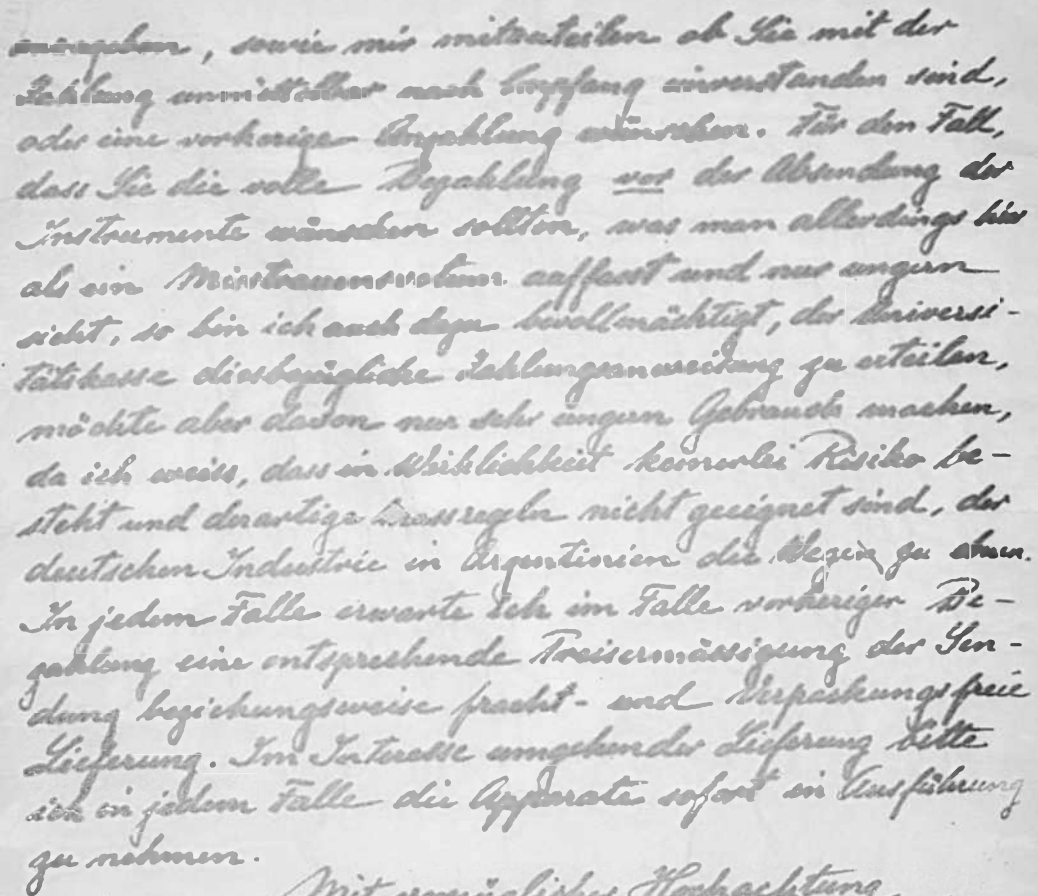 anzugeben, sowie mir mitzuteilen ob Sie mit der
Zahlung unmittelbar nach Empfang einverstanden sind,
oder eine vorherige Anzahlung wünschen. Für den Fall,
dass Sie die volle Bezahlung vor der Absendung der
Instrumente wünschen sollten, was man allerdings hier
als ein Misstrauensvotum auffasst und nur ungern
sieht, so bin ich auch dazu bevollmächtigt, der Universi-
tätskasse diesbezügliche Zahlungsanweisung zu erteilen,
möchte aber davon nur sehr ungern Gebrauch machen,
da ich weiss, dass in Wirklichkeit keinerlei Risiko be-
steht und derartige Massregeln nicht geeignet sind, der
deutschen Industrie in Argentinien die Wege zu ebnen.
In jedem Falle erwarte ich im Falle vorheriger Be-
zahlung eine entsprechende Preisermässigung der Sen-
dung beziehungsweise fracht- und verpackungsfreie
Lieferung. Im Interesse umgehender Lieferung bitte
ich in jedem Falle die Apparate sofort in Ausführung
zu nehmen.
Mit vorzüglicher Hochachtung